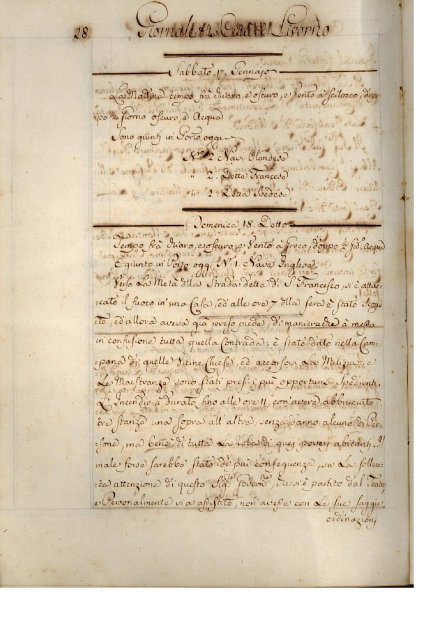 28
Giornali di Livorno
Sabbato 17. Gennajo
La Mattina tempo fra chiaro, e oscuro, e Vento a Scilocco, dop=
po gior.no oscuro, e Acqua
Sono giunti in Porto oggi
N.o 2. Navi Olandesi
2. Dette Francesi
2. Dette Svedesi
Domenica 18. Detto
Tempo frà Chiaro, e oscuro, e Vento a Greco, doppo Acqua
È giunto in Porto oggi N.o 1. Nave Inglese
Verso La Metà della Strada detta di S. Francesco, si è attac=
cato il fuoco in una Casa, ed alle ore 7 della sera è stato
to, ed allora aveva già preso piede, di maniera che à messo
in confusione tutta quella Contrada; è stato dato nella Cam=
pana di quelle Vicine Chiese, ed accorsovi La Milizia, e
Le Maestranze sono stati presi i più opportuni Spedienti.
L'Incendio à durato fino alle ore 11, con avere abbruciato
tre stanze una sopra all'altra, senza danno alcuno di Per=
sone, ma bensì di tutta La Robba di quei poveri abitanti, Il
male forse sarebbe stato di più conseguenza, se La solleci=
ta attenzione di questo Sig.e Govern.e, che vi è partito dal
e Personalmente vi à assistito, non avesse con Le sue saggie
ordinazioni